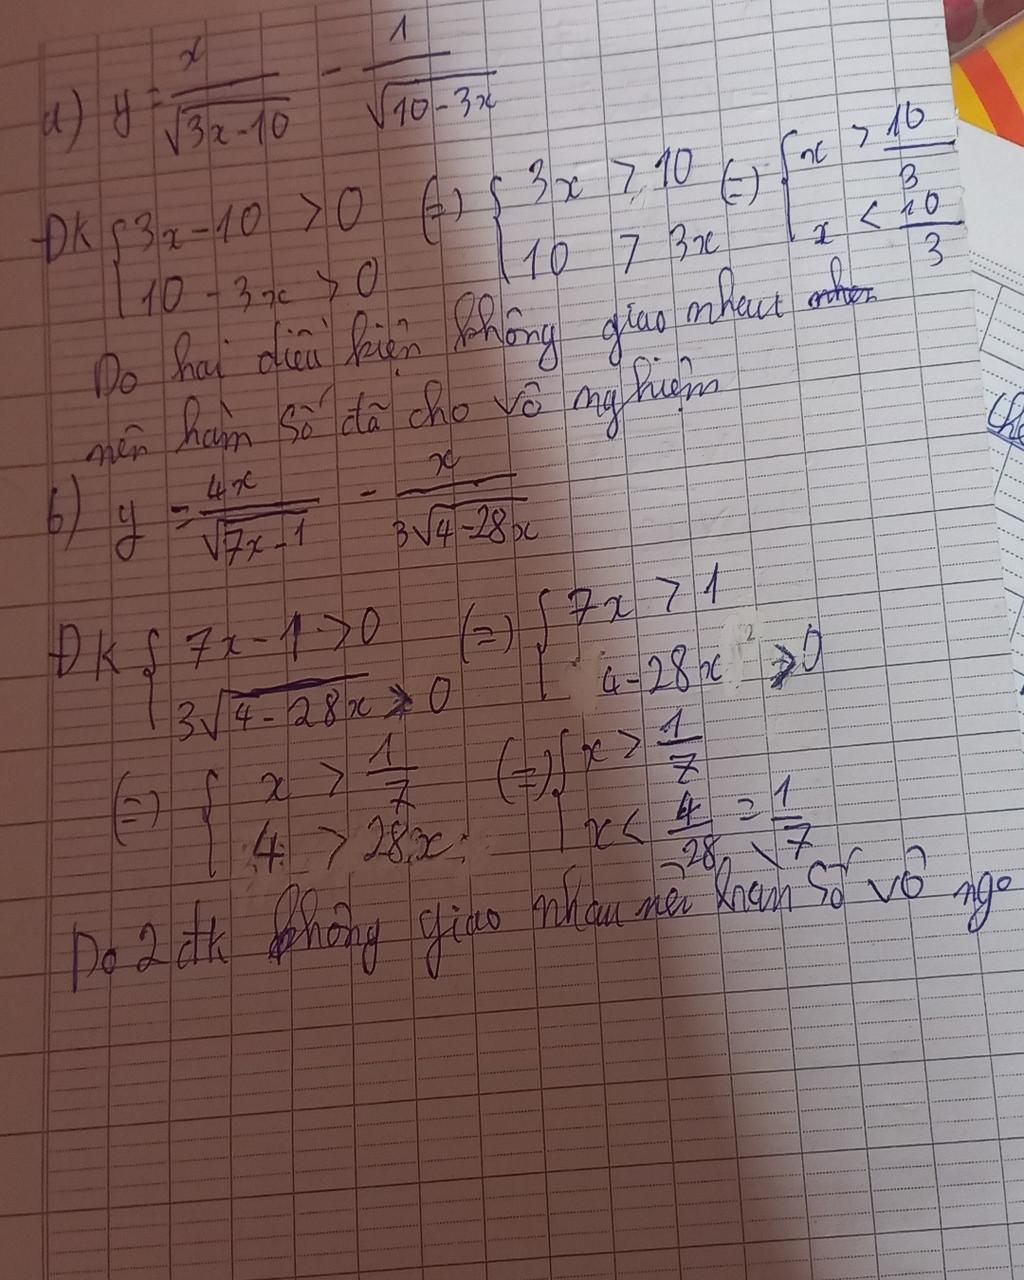 a) y = x/√(3x-10) - 1/√(10-3x)
ĐK { 3x-10 > 0 (=) { 3x > 10 (=) { x > 10/3
10-3x > 0 10 > 3x x < 10/3
Do hai điều kiện không giao nhau
nên hàm số đã cho vô nghiệm
b) y = 4x/√(7x-1) - x/3√(4-28x)
ĐK { 7x-1 > 0 (=) { 7x > 1
3√(4-28x) > 0 4-28x > 0
(=) { x > 1/7 (=) { x > 1/7
4 > 28x x < 4/28 = 1/7
Do 2 đk không giao nhau nên hàm số vô ngo